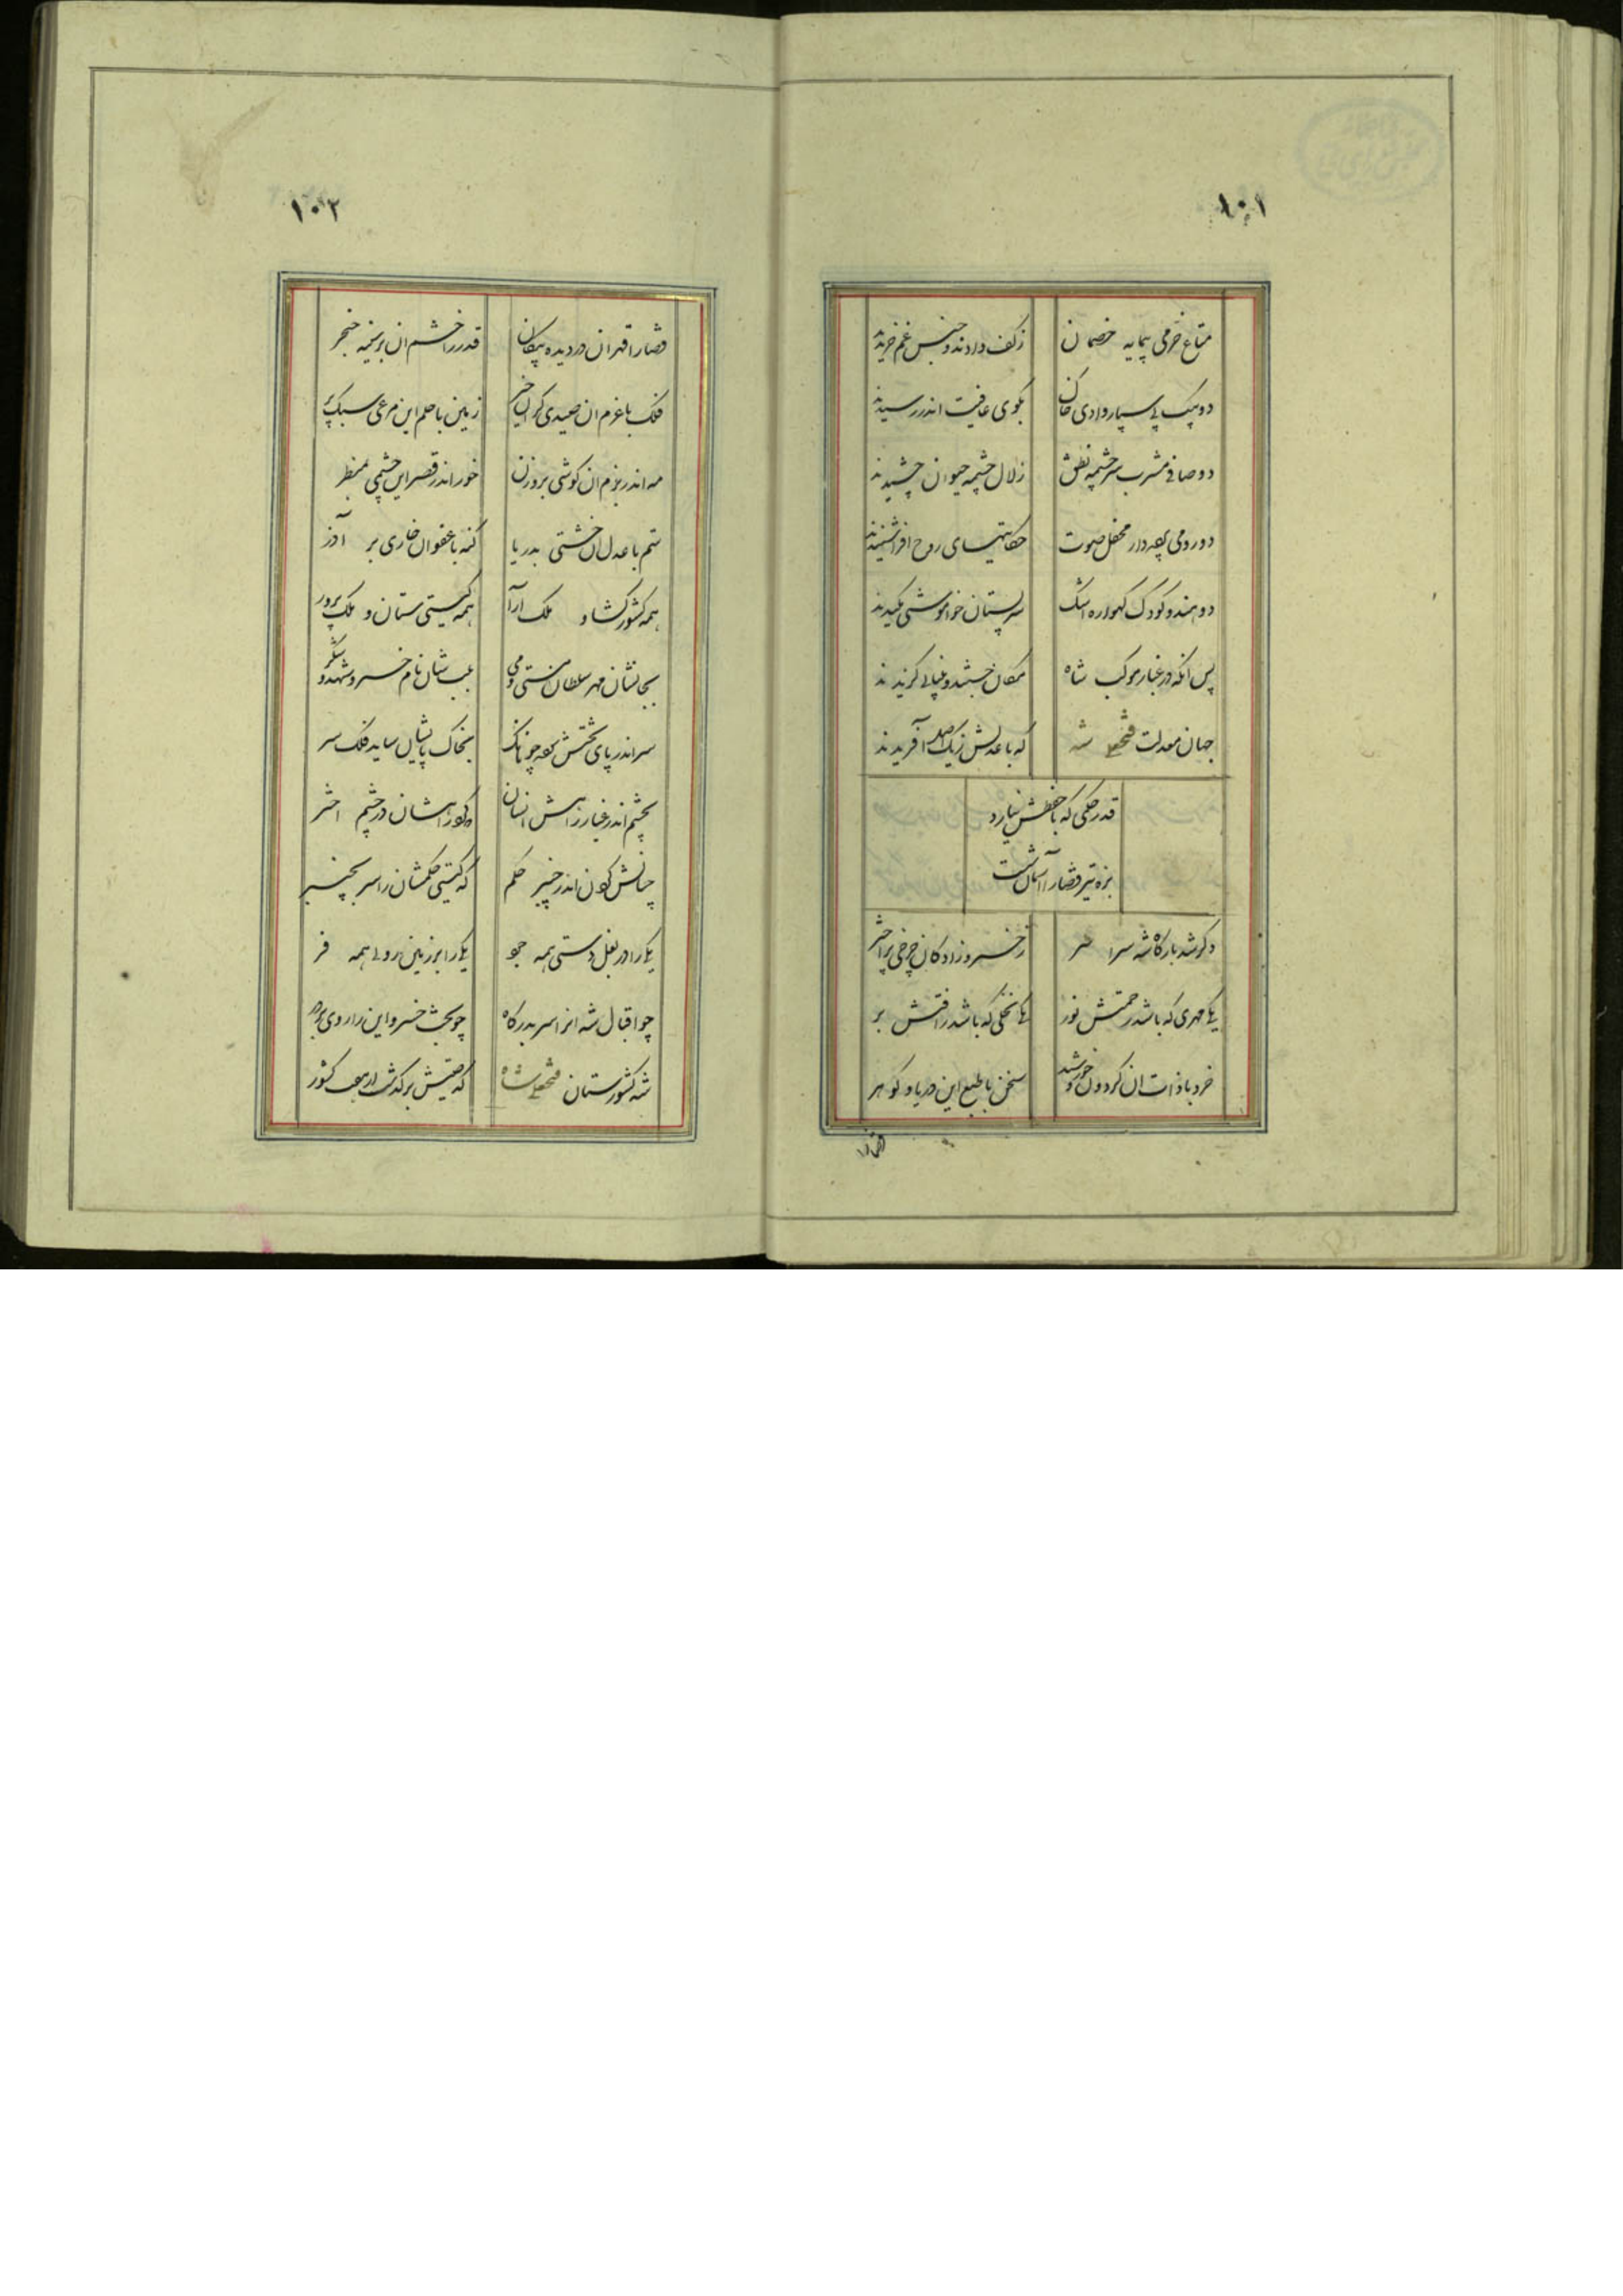 ۱۰۱
متاع خرمی پیمایه خصمان زکف دادند و جنس غم خریدند
دو پیک پی سپار وادی خاک بکوی عافیت اندر رسیدند
دو صافی مشرب سرچشمه نطق زلال چشمه حیوان چشیدند
دو رومی بهره دار محفل صوت حکایتهای روح افزا شنیدند
دو هندو کودک کهواره اشک سر پستان خواموشی مکیدند
پس انکه در غبار موکب شاه مکان جستند و
جهان معدلت فتحعلی شه که با عدلش زیک اصل آفریدند
قدر حکمی که با خطش نیارد
بزه تیر قضا را آسمان شست
دکر شد بارکاه شه سراسر زخسرو زادکان چرخی پر اختر
یکی مهری که باشد رحمتش نور یکی نخلی که باشد رافتش بر
خرد با ذات ان کردون و خورشید سخن با طبع این دریا و کوهر
قضا را
۱۰۲
قضا را قهر ان در دیده پیکان قدر را خشم ان بر سینه خنجر
فلک با عزم ان صیدی کران خیز زمین با حلم این مرغی سبک پر
مه اندر بزم ان کوشی بروزن خور اندر قصر این چشمی بمنظر
ستم با عدل ان خشتی بدریا کنه با عفو ان خاری بر آذر
همه کشور کشا و ملک ارا همه کیتی ستان و ملک پرور
بجانشان مهر سلطان مستی و می بلب شان نام خسرو شهد و شکر
سر اندر پای تختش بوده چونانک بخاک پایشان ساید فلک سر
بچشم اندر غبار راهش انسان که کرد راهشان در چشم اختر
چنانش کردن اندر چنبر حکم که کیتی حکمشان را سر بچنبر
یکی را در بغل دستی همه جود یکی را بر زمین رویی همه فر
چو اقبال شه انرا سر بدرکاه چو بخت خسرو این را روی بر در
شه کشورستان فتحعلی شاه که صیتش برکذشت از هفت کشور